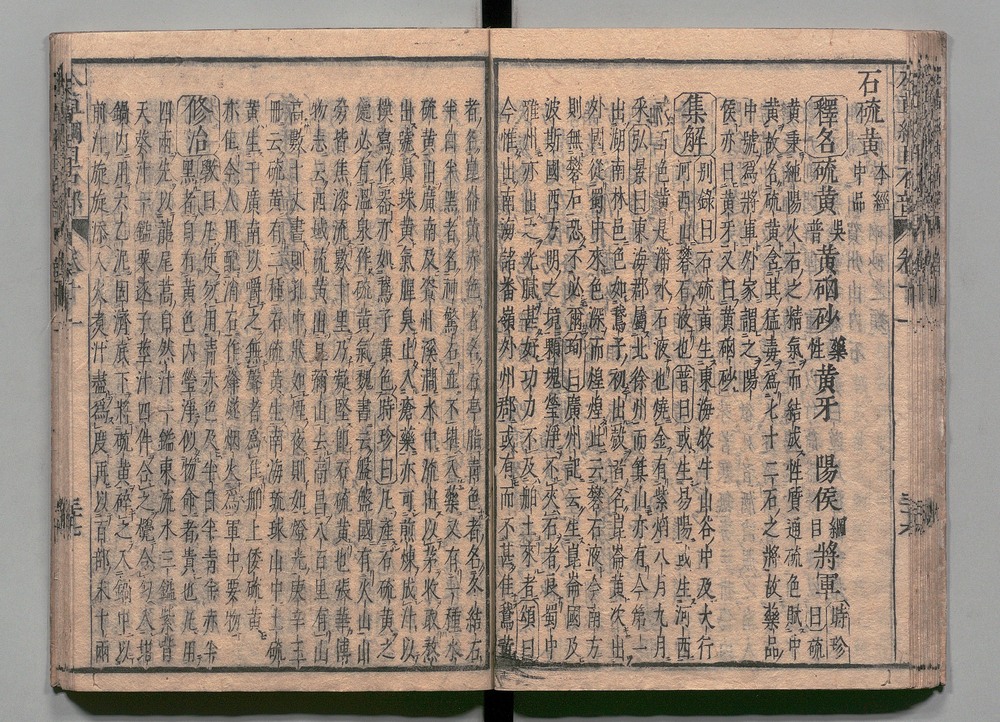 石硫黃 本經中品
釋名硫黃 吳普 黃硇砂 藥性 黃牙 陽侯 綱目 將軍 時珍曰硫
黃秉純陽火石之精氣而結成性質通硫色賦中
黃故名硫黃含其猛毒為七十二石之將故藥品
中號為將軍外家謂之陽
侯亦曰黃牙又曰黃硇砂
集解 別錄曰石硫黃生東海牧牛山谷中及太行
河西山礬石液也普曰或生易陽或生河西
或五色黃是潘水石液也燒金有紫焰八月九月
采弘景曰東海郡屬北徐州而箕山亦有今第一
出扶南林邑色如鵞子初出殼者名崑崙黃次出
外國從蜀中來色深而煌煌此云礬石液今南方
則無礬石恐不必爾珣曰廣州記云生崑崙國及
波斯國西方明之境顆塊瑩淨不夾石者良蜀中
雅州亦出之光膩甚好功力不及舶上來者頌曰
今惟出南海諸番嶺外州郡或有而不甚佳鵞黃
者名崑崙黃赤色者名石亭脂青色者名冬結石
半白半黑者名神驚石並不堪入藥又有一種水
硫黃出廣南及資州溪澗水中流出以茶收取熬
出號真珠黃氣腥臭止入瘡藥亦可煎煉成汁以
模寫作器亦如鵞子黃色時珍曰凡產石硫黃之
處必有溫泉泉作硫黃氣魏書云悅般國有火山山
旁皆焦溶流數十里乃凝堅即石硫黃也張華博
物志云西域硫黃出且彌山去高昌八百里有山
高數十丈晝則孔中狀如煙夜則如燈光庚辛玉
冊云硫黃有二種石硫黃生南海琉球山中土硫
黃生于廣南以嚼之無聲者為佳舶上倭硫黃
亦佳今人用配消石作烽燧烟火為軍中要物
修治 斅曰凡使勿用青赤色及半白半青半赤半
黑者自有黃色內瑩淨似物命者貴也凡用
四兩先以龍尾蒿自然汁一鎰東流水三鎰紫背
天葵汁一鎰粟遂子莖汁四件合之攪令勻入坩
鍋內用六乙泥固濟底下將硫黃碎之入鍋中以
前汁旋旋添入火煮汁盡為度再以百部末十兩